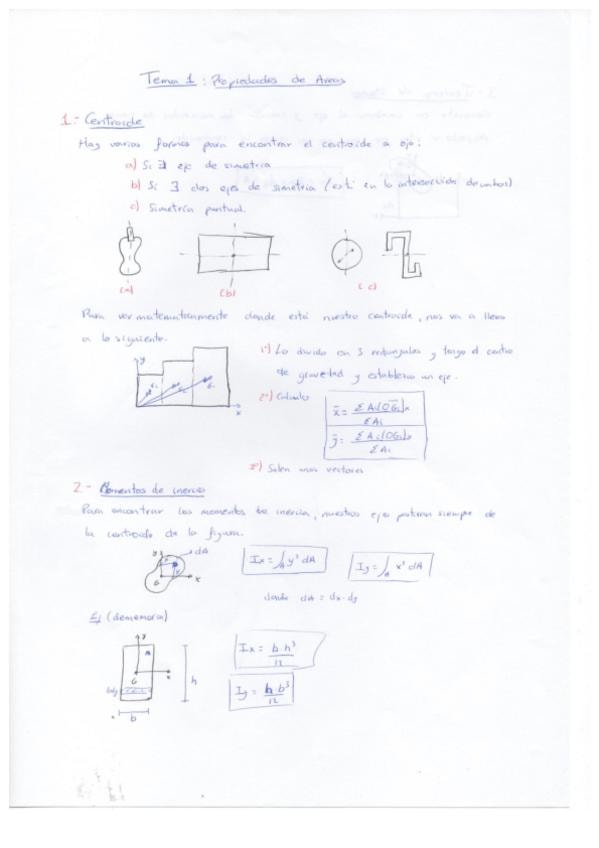 Tema 1: Propiedades de Areas
1.- Centroide
Hay varias formas para encontrar el centroide a ojo:
a) Si ∃ eje de simetria
b) Si ∃ dos ejes de simetria (está en la intersección de ambos)
c) Simetría puntual.
(a) (b) (c)
Para ver matematicamente donde está nuestro centroide, nos va a llevar
a lo siguiente.
1º) Lo divido en 3 rectangulos y tengo el centro
de gravedad y establezco un eje.
2º) Calculo
x̄ = Σ Ai(OGi)x / ΣAi
ȳ = Σ Ai(OGi)x / ΣAi
3º) Salen unos vectores
y
x
2.- Momentos de inercia
Para encontrar los momentos de inercia, nuestros ejes partiran siempre de
la centroide de la figura.
y
dA
G
x
Ix = ∫A y² dA
Iy = ∫A x² dA
donde dA = dx·dy
Ej (de memoria)
y
A
G
x
h
b
Ix = b·h³ / 12
Iy = h·b³ / 12